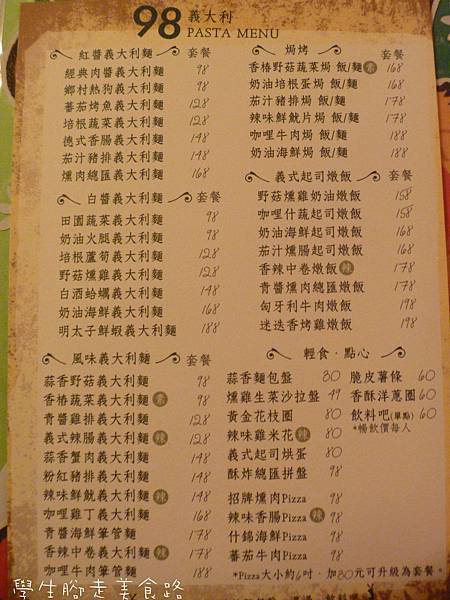 98 義大利
PASTA MENU
紅醬義大利麵 套餐
經典肉醬義大利麵 98
鄉村熱狗義大利麵 98
蕃茄烤魚義大利麵 128
培根蔬菜義大利麵 128
德式香腸義大利麵 148
茄汁豬排義大利麵 148
燻肉總匯義大利麵 168
白醬義大利麵 套餐
田園蔬菜義大利麵 98
奶油火腿義大利麵 98
培根蘆筍義大利麵 128
野菇燻雞義大利麵 128
白酒蛤蠣義大利麵 148
奶油海鮮義大利麵 168
明太子鮮蝦義大利麵 188
風味義大利麵 套餐
蒜香野菇義大利麵 98
香椿蔬菜義大利麵 素 98
青醬雞排義大利麵 128
義式辣腸義大利麵 辣 128
蒜香蟹肉義大利麵 148
粉紅豬排義大利麵 148
辣味鮮魷義大利麵 辣 148
咖哩雞丁義大利麵 168
青醬海鮮筆管麵 178
香辣中卷義大利麵 辣 178
咖哩牛肉筆管麵 188
焗烤 套餐
香椿野菇蔬菜焗 飯/麵 素 168
奶油培根蛋焗 飯/麵 168
茄汁豬排焗 飯/麵 178
辣味鮮魷片焗 飯/麵 178
咖哩牛肉焗 飯/麵 188
奶油海鮮焗 飯/麵 188
義式起司燉飯 套餐
野菇燻雞奶油燉飯 158
咖哩什蔬起司燉飯 158
奶油海鮮起司燉飯 168
茄汁燻腸起司燉飯 168
香辣中卷燉飯 辣 178
青醬燻肉總匯燉飯 178
匈牙利牛肉燉飯 198
迷迭香烤雞燉飯 198
輕食·點心
蒜香麵包盤 30
燻雞生菜沙拉盤 49
黃金花枝圈 80
辣味雞米花 辣 80
義式起司烘蛋 80
酥炸總匯拼盤 98
招牌燻肉Pizza 98
辣味香腸Pizza 辣 98
什錦海鮮Pizza 98
蕃茄牛肉Pizza 98
脆皮薯條 60
香酥洋蔥圈 60
飲料吧(單點) 60
*暢飲價每人
*Pizza大小約6吋．加30元可升級為套餐。
學生腳走美食路